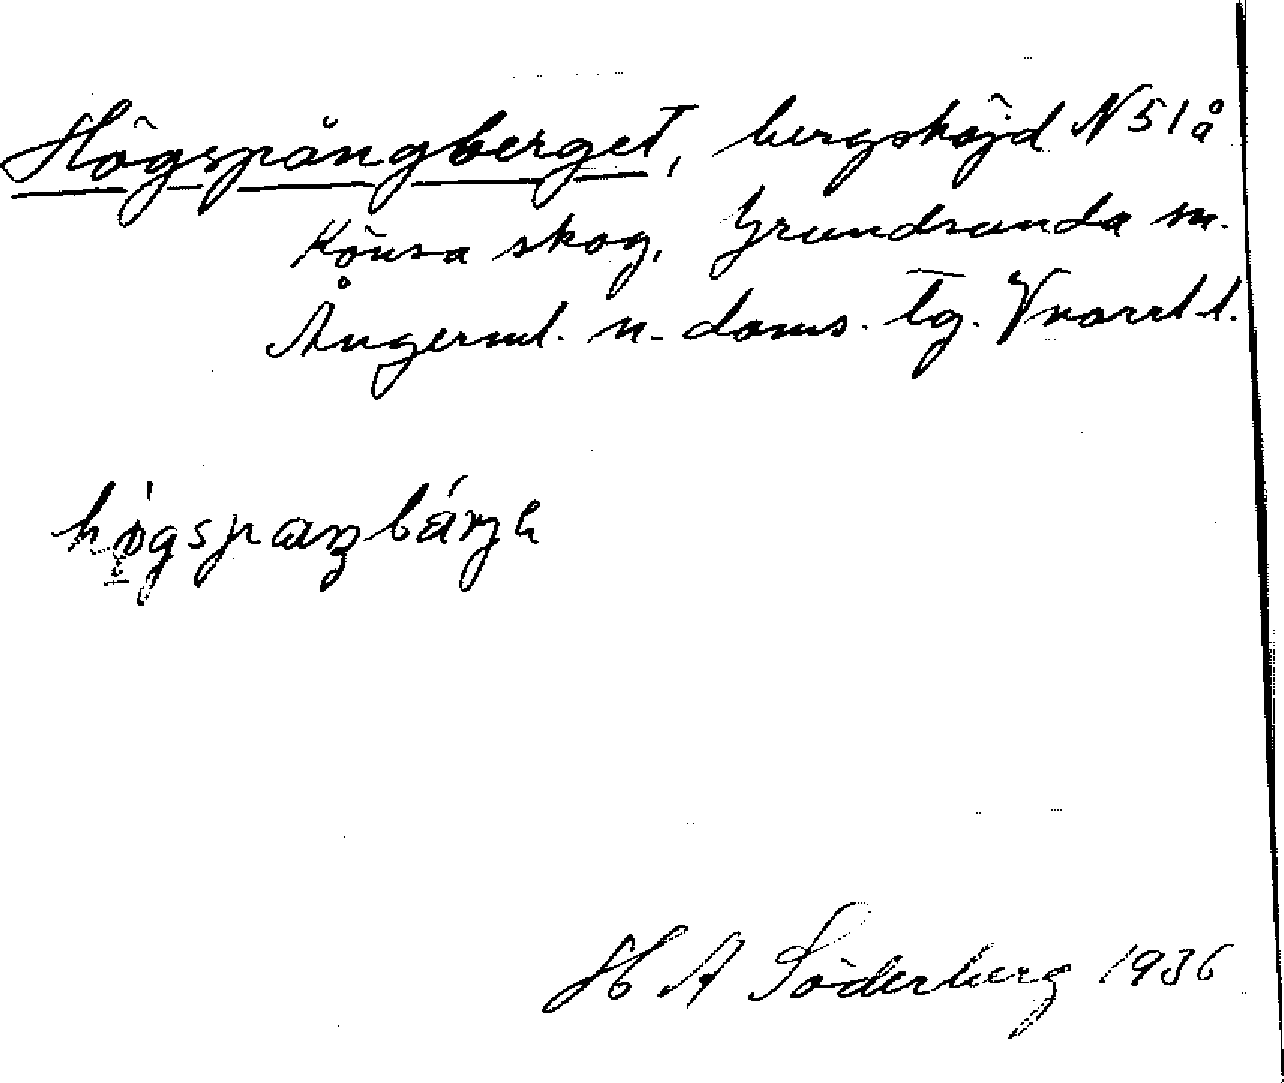 Högspångberget, bergshöjd N 51 å
Könsa skog, Grundsunda sn.
Ångerml. n. doms. tg. Vnorrl. l.
H A Söderberg 1936